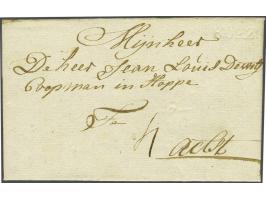 Mijnheer
De heer Jean Louis
Coopman in Hoppe
Te
Aelst